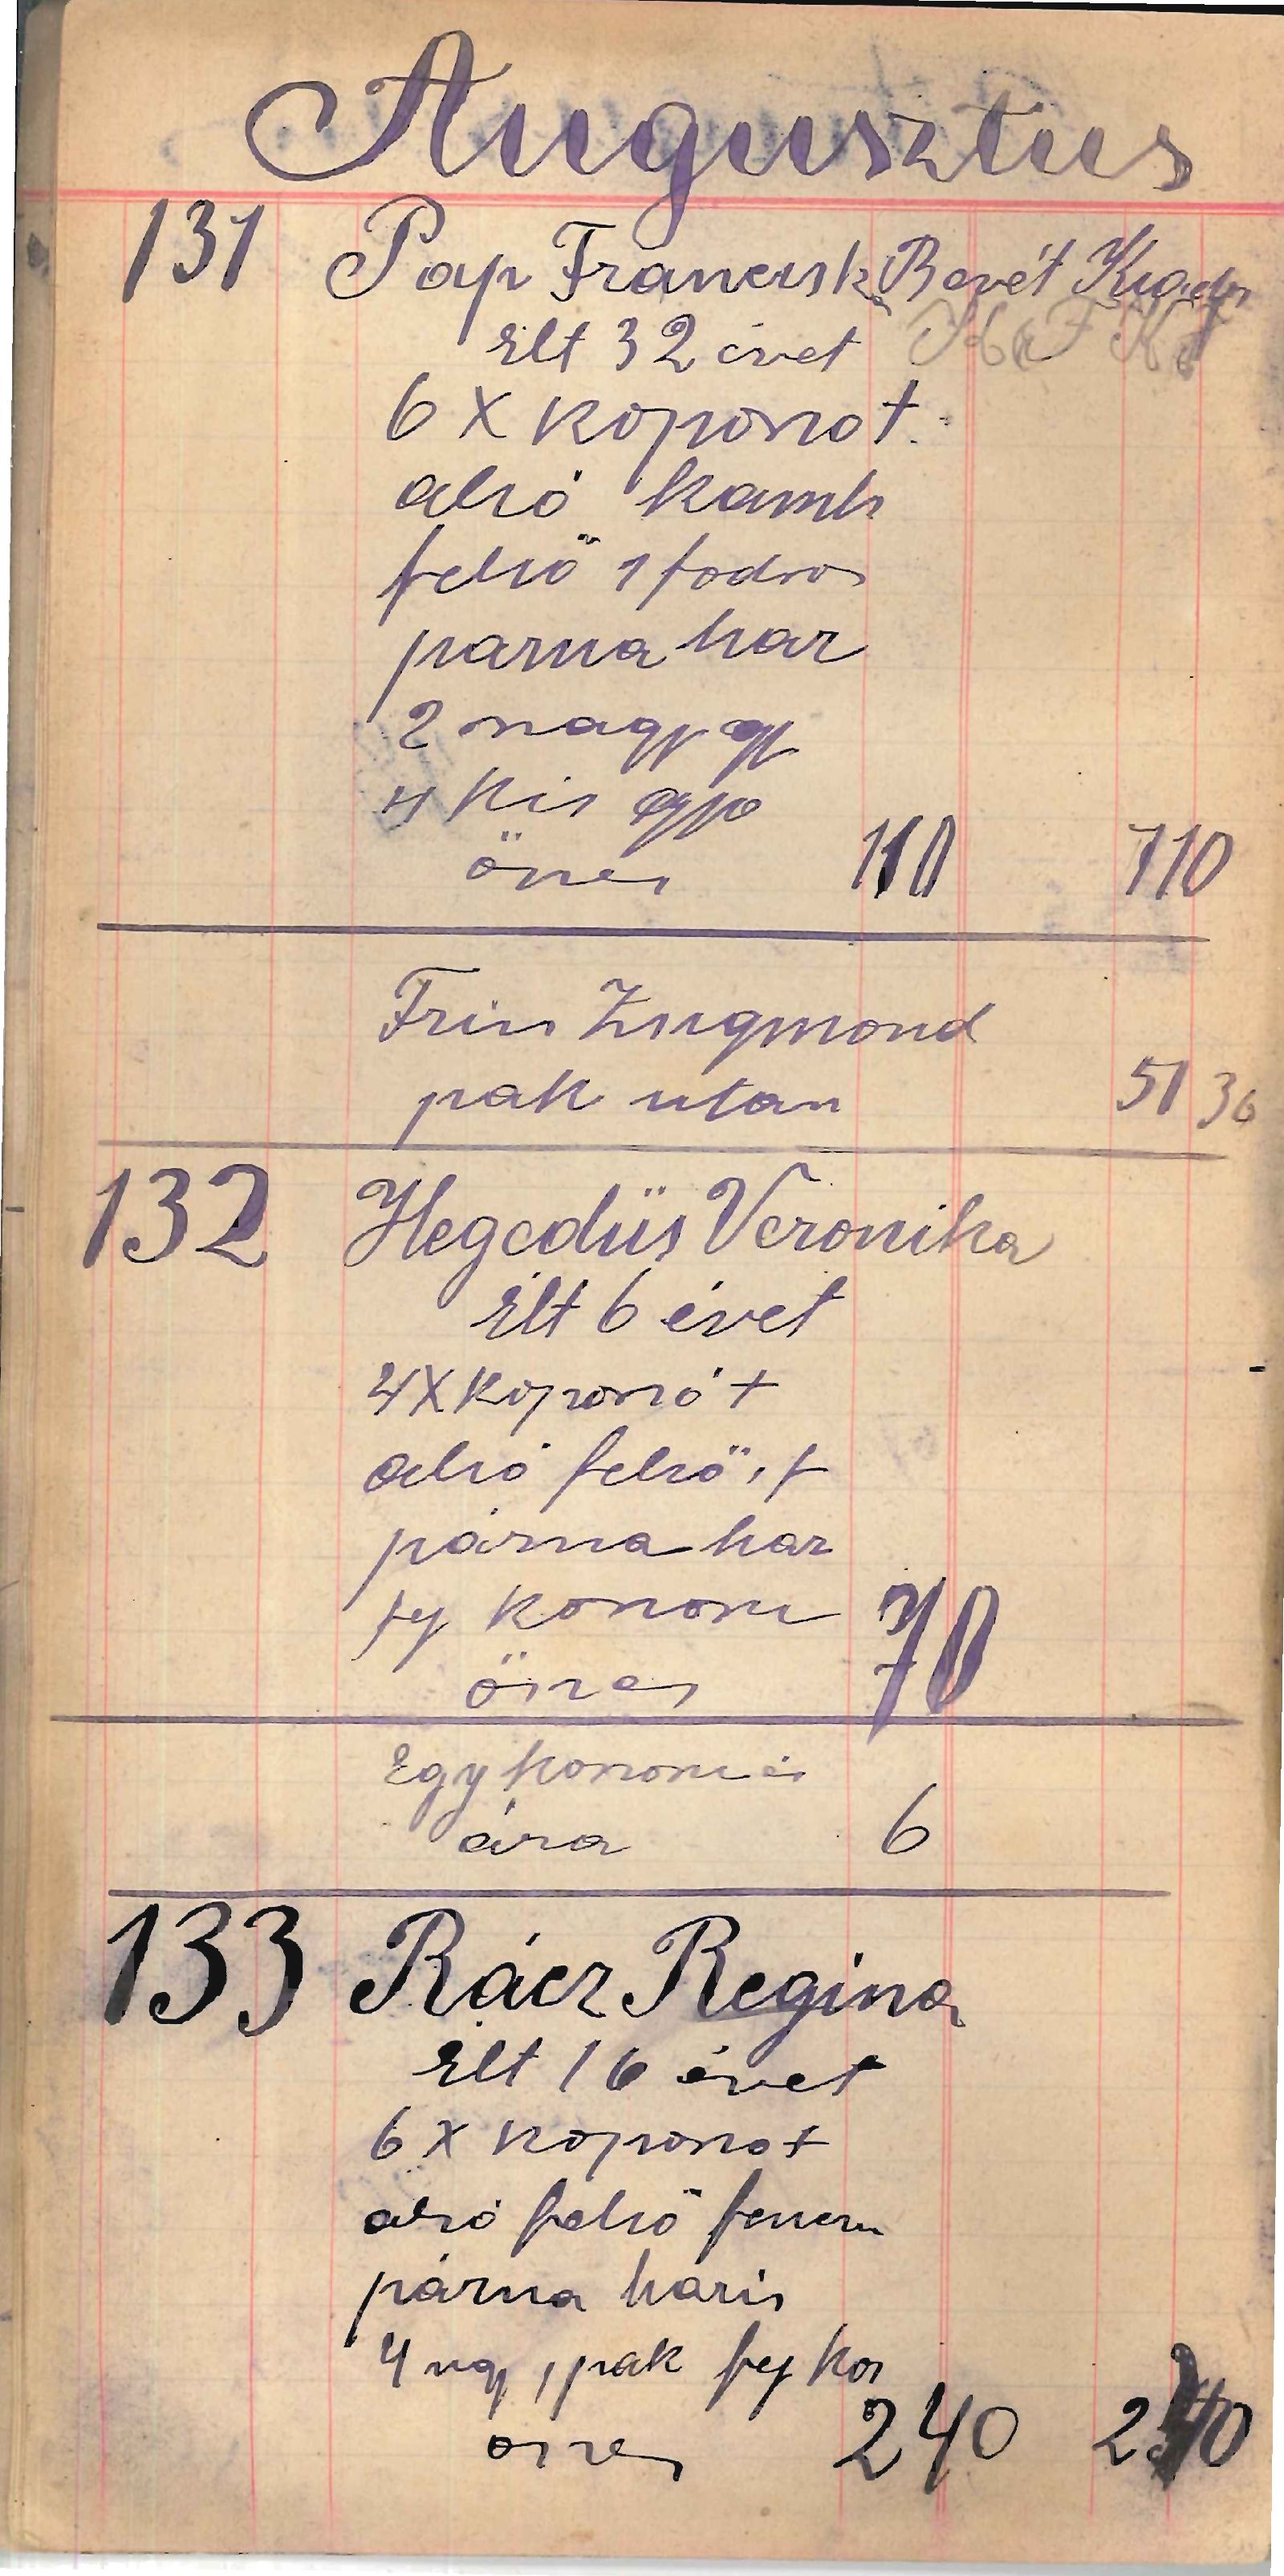 Augusztus
131 Pap Francisk Bevét Kiadás
K F K f
élt 32 évet
6 X koporsot
alsó kamh
felső 1 fodros
parna har
2 nagy gy
4 kis gyo
össes 110 110
Friss Zsigmond
pak utan 51 36
132 Hegedüs Veronika
élt 6 évet
4X koporsó t
alsó felső, f
párna har
fej koszoru
összes 70
Egy koszoru
ára 6
133 Rácz Regina
élt 16 évet
6 X koporsot
alsó felső
párna haris
4 ngy, 1 pak fej kos
össes 240 240